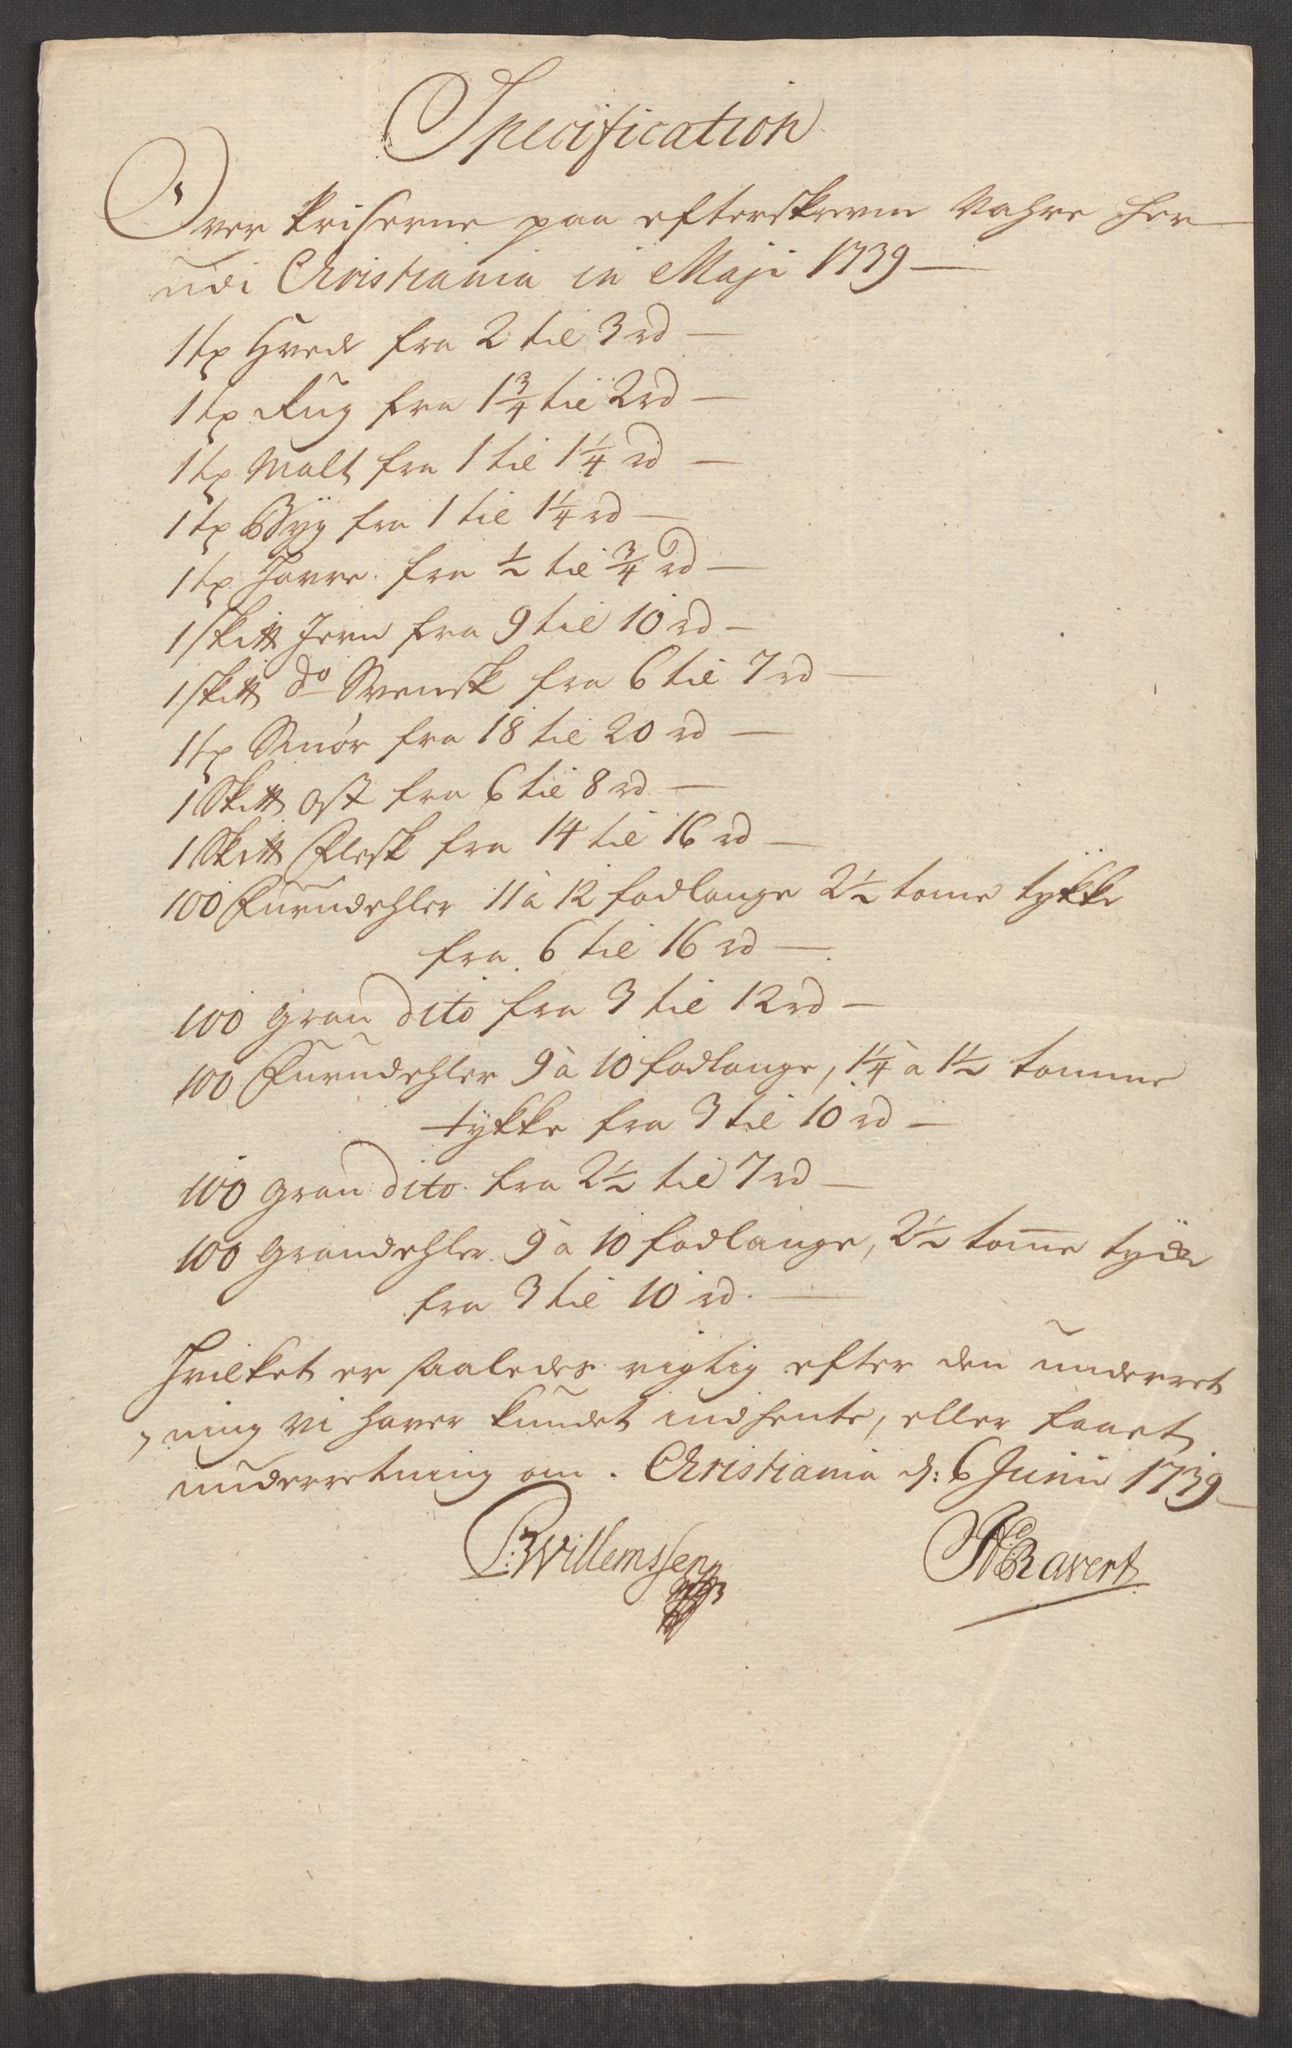 Specification
Over Priserne paa efterskrevne Vahre her
udi Christiania in Maji 1739
1 tr Hvede fra 2 til 3 rd
1 tr Rug fra 1 3/4 til 2 rd
1 tr Malt fra 1 til 1 1/4 rd
1 tr Byg fra 1 til 1 1/4 rd
1 tr Havre fra 1/2 til 3/4 rd
1 Skt℔ Jern fra 9 til 10 rd
1 Skt℔ do Svensk fra 6 til 7 rd
1 tr Smør fra 18 til 20 rd
1 Skt℔ Ost fra 6 til 8 rd
1 Skt℔ Flesk fra 14 til 16 rd
100 Furudehler 11 à 12 fodlange 2 1/2 tome tykke
fra 6 til 16 rd
100 gran dito fra 3 til 12 rd
100 Furudehler 9 à 10 fodlange, 1 1/4 à 1 1/2 tomme
tykke fra 3 til 10 rd
100 gran dito fra 2 1/2 til 7 rd
100 Grandehler 9 à 10 fodlange, 2 1/2 tome
fra 3 til 10 rd.
Hvilket er saaledes rigtig efter den underret
ning vi haver kundet indhente, eller faaet
underretning om. Christiania d: 6 Junii 1739
Willemssen Ravert